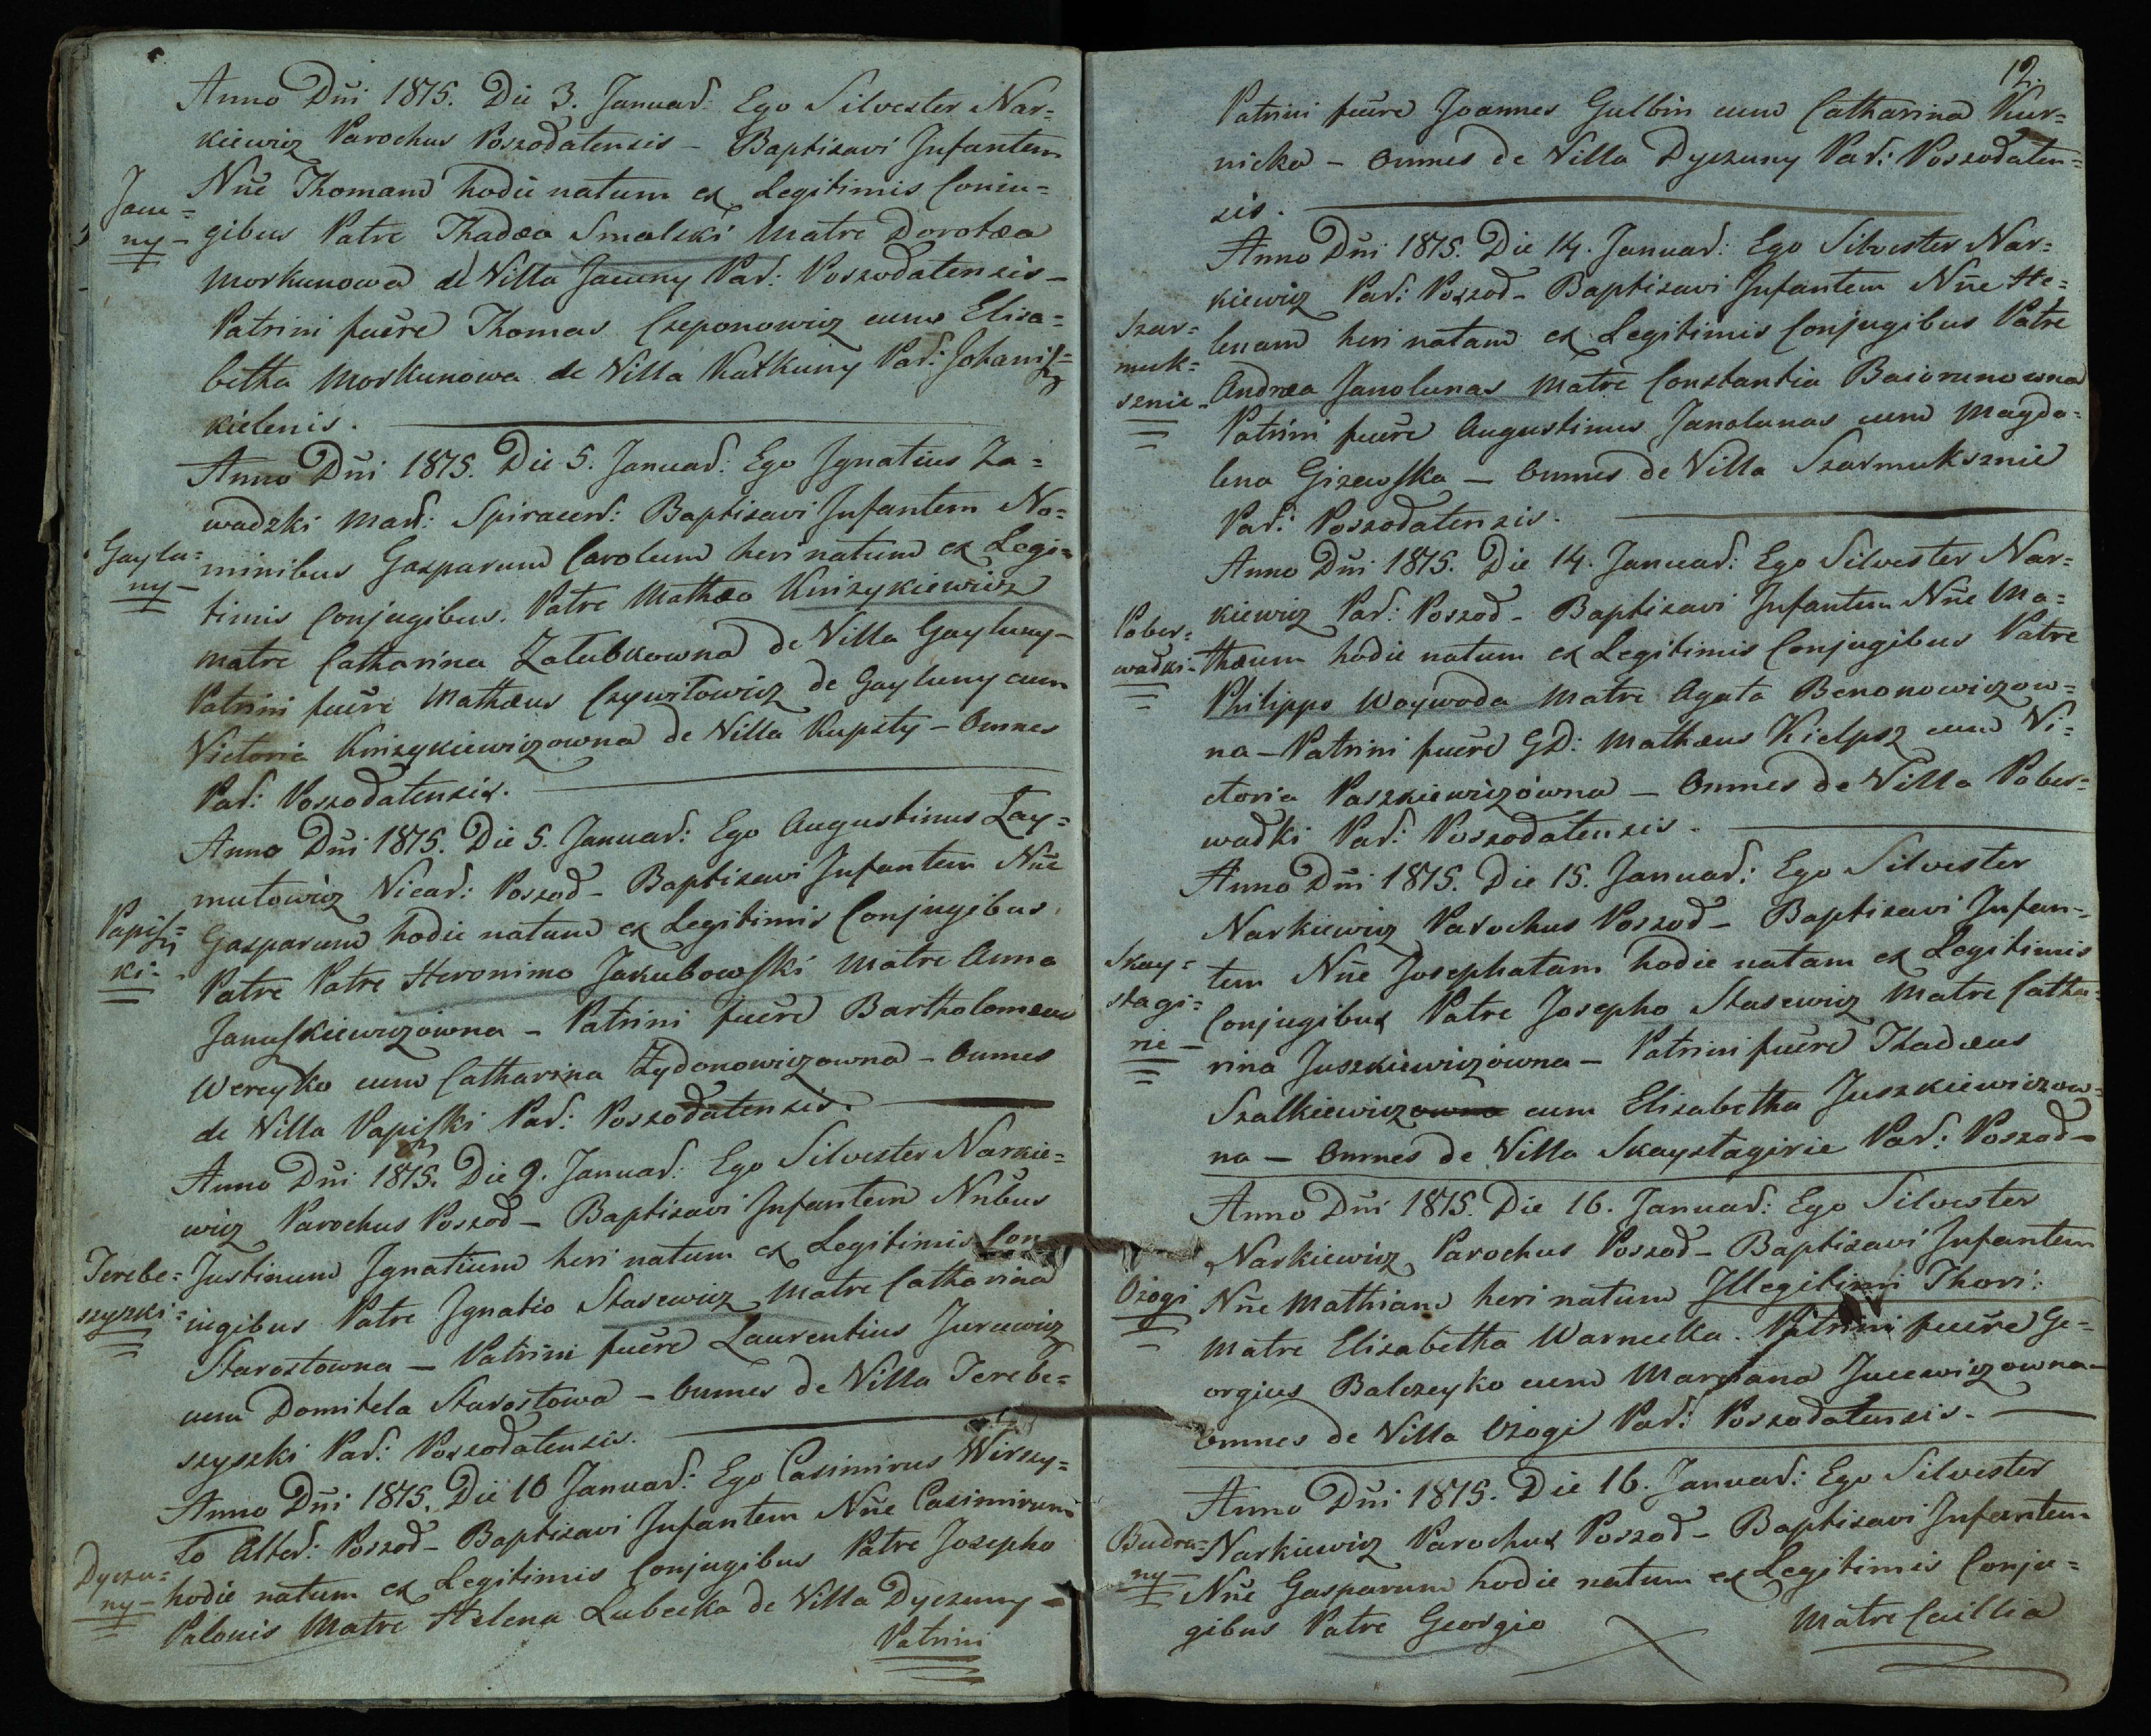 Anno Dñi 1815. Die 3. Januar: Ego Silvester Nar=
kiewicz Parochus Poszodatensis – Baptisavi Infantem
Jacu= Nñe Thomam hodie natum ex Legitimis Coniu=
ny – gibus Patre Thadæo Smalski Matre Dorotæa
Morkunowa de Villa Jacuny Par: Poszodatensis –
Patrini fuēre Thomas Czeponowicz cum Elisa=
betha Morkunowa de Villa Katkuny Par: Johanisz=
kielenis.
Anno Dñi 1815. Die 5. Januar: Ego Ignatius Za=
wadzki Mar: Spiracen: Baptisavi Infantem No=
Gaylu= minibus Gasparum Carolum heri natum ex Legi=
ny – timis Conjugibus. Patre Mathæo Knizykiewicz
Matre Catharina Załubkowna de Villa Gayluny –
Patrini fuēre Mathæus Czywilowicz de Gayluny cum
Victoria Knizykiewiczowna de Villa Kupsty – Omnes
Par: Poszodatensis.
Anno Dñi 1815. Die 5. Januar: Ego Augustinus Lay=
mutowicz Vicar: Poszod – Baptisavi Infantem Nñe
Papisz= Gasparum hodie natum ex Legitimis Conjugibus
ki – Patre Patre Heronimo Jakubowski Matre Anna
Januszkiewiczówna – Patrini fuēre Bartholomæus
Wereyko cum Catharina Żydonowiczowna – Omnes
de Villa Papiszki Par: Poszodatensis.
Anno Dñi 1815. Die 9. Januar: Ego Silvester Narkie=
wicz Parochus Poszod – Baptisavi Infantem Nnibus
Terebe= Justinum Ignatium heri natum ex Legitimis Con=
szyszki – iugibus Patre Ignatio Stasewicz Matre Catharina
Starostowna – Patrini fuēre Laurentius Jurcewicz
cum Domitela Starostowa – Omnes de Villa Terebe=
szyszki Par: Poszodatensis.
Anno Dñi 1815. Die 10 Januar: Ego Casimirus Wirszy=
to Altar: Poszod – Baptisavi Infantem Nñe Casimirum
Dyczu= hodie natum ex Legitimis Conjugibus Patre Josepho
ny – Palonis Matre Helena Lubecka de Villa Dyczuny –
Patrini
12.
Patrini fuēre Joannes Gulbin cum Catharina Kur=
nicka – Omnes de Villa Dyczuny Par: Poszodaten=
sis.
Anno Dñi 1815. Die 14. Januar: Ego Silvester Nar=
kiewicz Par: Poszod – Baptisavi Infantem Nñe He=
Szar= lenam heri natam ex Legitimis Conjugibus Patre
muk= Andræa Janolunas Matre Constantia Baiorunowna
sznie – Patrini fuēre Augustinus Janolunas cum Magda=
lena Gizewska – Omnes de Villa Szarmuksznie
Par: Poszodatensis.
Anno Dñi 1815. Die 14. Januar: Ego Silvester Nar=
Pober= kiewicz Par: Poszod – Baptisavi Infantem Nñe Ma=
wadki – thæum hodie natum ex Legitimis Conjugibus Patre
Philippo Woywoda Matre Agata Benonowiczow=
na – Patrini fuēre GD: Mathæus Kielpsz cum Vi=
ctoria Paszkiewiczówna – Omnes de Villa Pober=
wadki Par: Poszodatensis.
Anno Dñi 1815. Die 15. Januar: Ego Silvester
Narkiewicz Parochus Poszod – Baptisavi Infan=
Skay= tem Nñe Josephatam hodie natam ex Legitimis
stagi= Conjugibus Patre Josepho Stasewicz Matre Catha=
rie – rina Juszkiewiczówna – Patrini fuēre Thadæus
Szalkiewiczowna cum Elisabetha Juszkiewiczow=
na – Omnes de Villa Skaystagirie Par: Poszod –
Anno Dñi 1815. Die 16. Januar: Ego Silvester
Narkiewicz Parochus Poszod – Baptisavi Infantem
Ozogi Nñe Mathiam heri natum Illegitimi Thori:
Matre Elisabetha Warnecka. Patrini fuēre Ge=
orgius Balczeyko cum Maryana Jucewiczowna –
Omnes de Villa Ozogi Par: Poszodatensis –
Anno Dñi 1815. Die 16. Januar: Ego Silvester
Budra= Narkiewicz Parochus Poszod – Baptisavi Infantem
ny – Nñe Gasparum hodie natum ex Legitimis Conju=
gibus Patre Georgio Matre Cæcilia